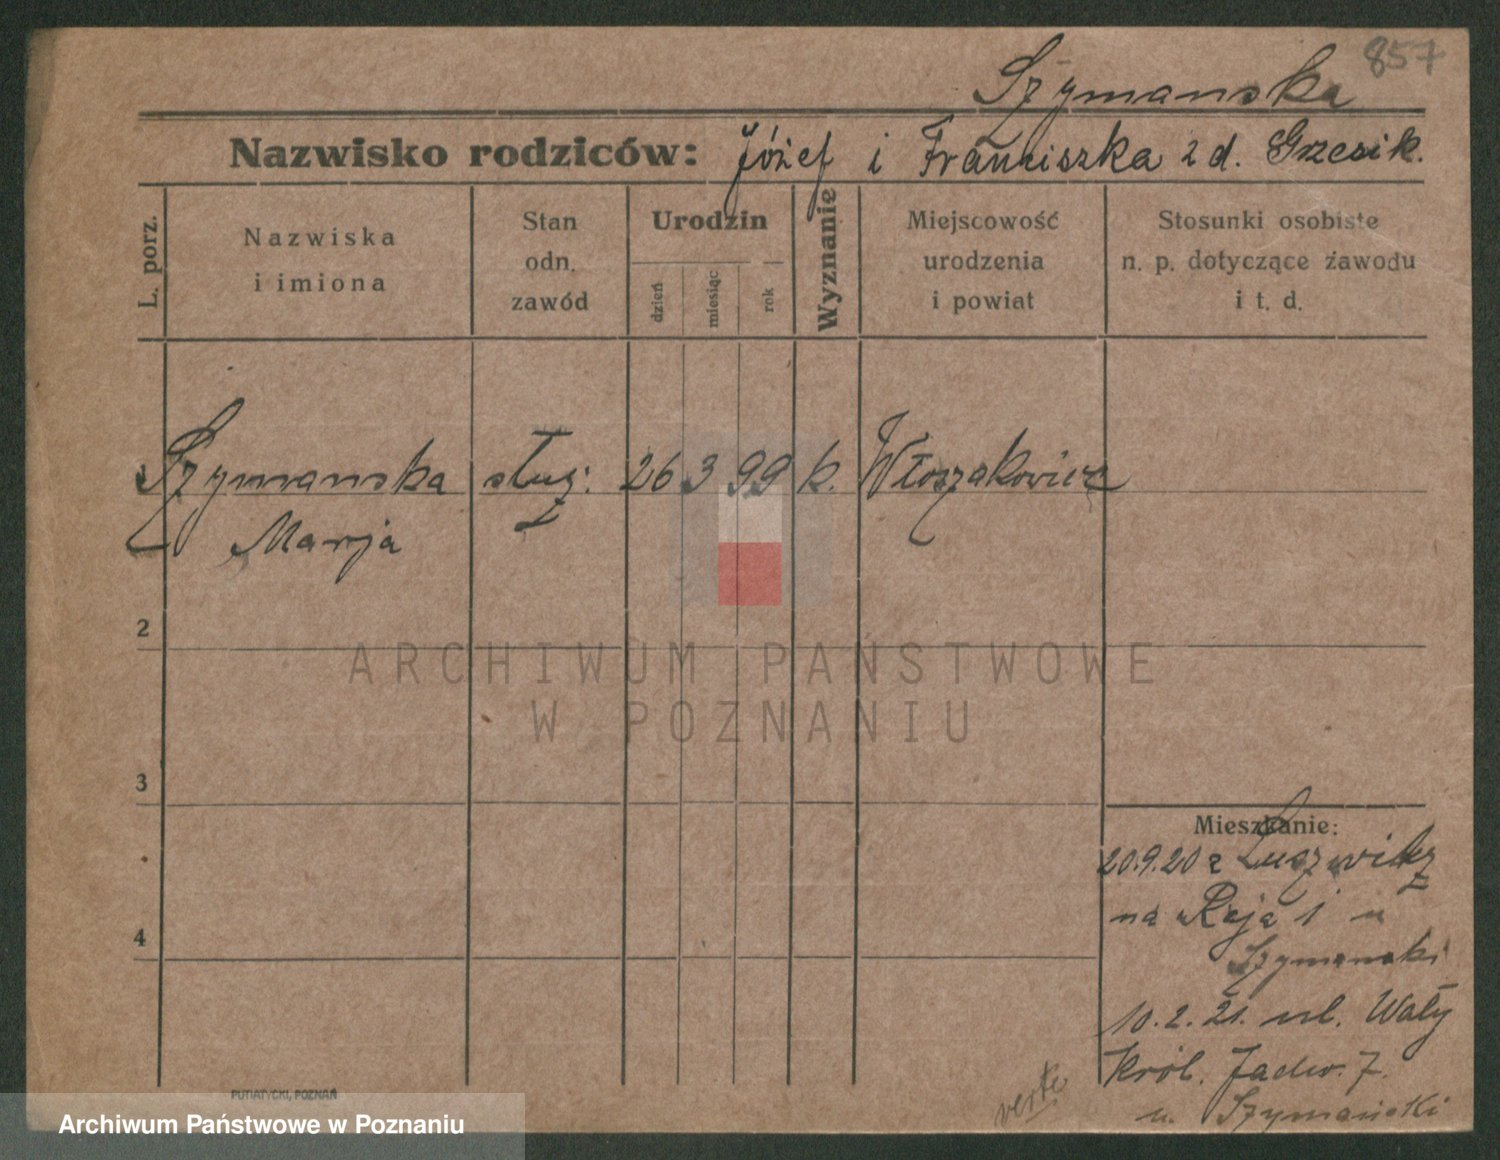 857
Szymanska
Nazwisko rodziców: Józef i Franciszka z d. Grzesik.
L. porz.
Nazwiska
i imiona
Stan
odn.
zawód
Urodzin
dzień
miesiąc
rok
Wyznanie
Miejscowość
urodzenia
i powiat
Stosunki osobiste
n. p. dotyczące zawodu
i t. d.
1 Szymanska służ: 26 3 99 k. Włoszakowice
Marja
2
ARCHIWUM PAŃSTWOWE
W POZNANIU
3
Mieszkanie:
20.9.20 z
na Reja 1 u
Szymanski
4
10.2.21. ul. Wały
Król. Jadw. 7.
u. Szymański
verte
PUTIATYCKI, POZNAŃ
Archiwum Państwowe w Poznaniu